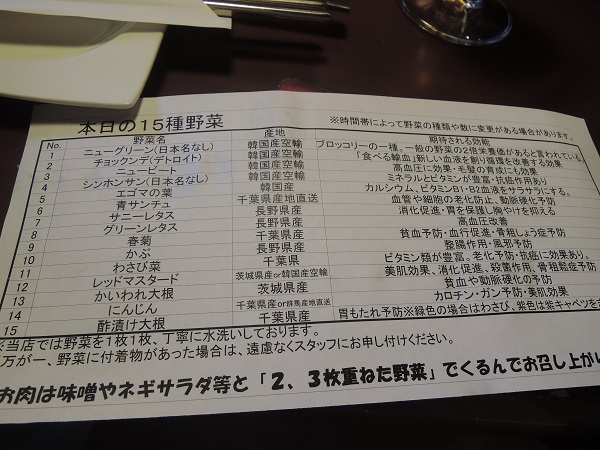 本日の15種野菜
※時間帯によって野菜の種類や数に変更がある場合があります。
No. 野菜名 産地 期待される効能
1 ニューグリーン(日本名なし) 韓国産空輸 ブロッコリーの一種。一般の野菜の2倍栄養価があると言われている
2 チョックンデ(デトロイト) 韓国産空輸 「食べる輸血」新しい血液を創り循環を改善する効果
3 ニュービート 韓国産空輸 高血圧に効果・毛髪の育成にも効果
4 シンホンサン(日本名なし) 韓国産空輸 ミネラルとビタミンが豊富・抗癌作用あり
5 エゴマの葉 韓国産 カルシウム、ビタミンB1・B2血液をサラサラにする。
6 青サンチュ 千葉県産地直送 血管や細胞の老化防止、動脈硬化予
7 サニーレタス 長野県産 消化促進・胃を保護し胸やけを抑える
8 グリーンレタス 長野県産 高血圧改善
9 春菊 千葉県産 貧血予防・血行促進・骨粗しょう症予防
10 かぶ 長野県産 整腸作用・風邪予防
11 わさび菜 千葉県 ビタミン類が豊富。老化予防・抗癌に効果あり。
12 レッドマスタード 茨城県産or韓国産空輸 美肌効果、消化促進、殺菌作用、骨粗鬆症予防
13 かいわれ大根 茨城県産 貧血や動脈硬化の予防
14 にんじん 千葉県産or群馬産地直送 カロチン・ガン予防・美肌効果
15 酢漬け大根 千葉県産 胃もたれ予防※緑色の場合はわさび、紫色は紫キャベツを
※当店では野菜を1枚1枚、丁寧に水洗いしております。
万が一、野菜に付着物があった場合は、遠慮なくスタッフにお申し付けください。
お肉は味噌やネギサラダ等と「2、3枚重ねた野菜」でくるんでお召し上が